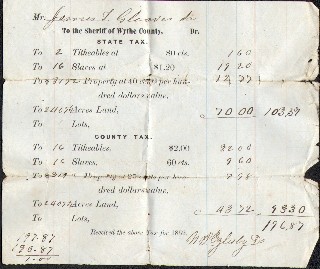 Mr. James T. Gleaves Dr
To the Sheriff of Wythe County, Dr.
STATE TAX.
To 2 Titheables at 80 cts. 1 60
To 16 Slaves at $1.20 19 20
To Property at 40 cents per hundred dollars value. 12 77
To Acres Land, 70 00 103,57
To Lots,
COUNTY TAX.
To 16 Titheables, $2.00 32 00
To 16 Slaves, 60 cts. 9 60
To Property at cents per hundred dollars value. 7 98
To Acres Land, 43 72 93 30
To Lots, 196.87
Received the above Tax for 18
197.87
196.87
1.00